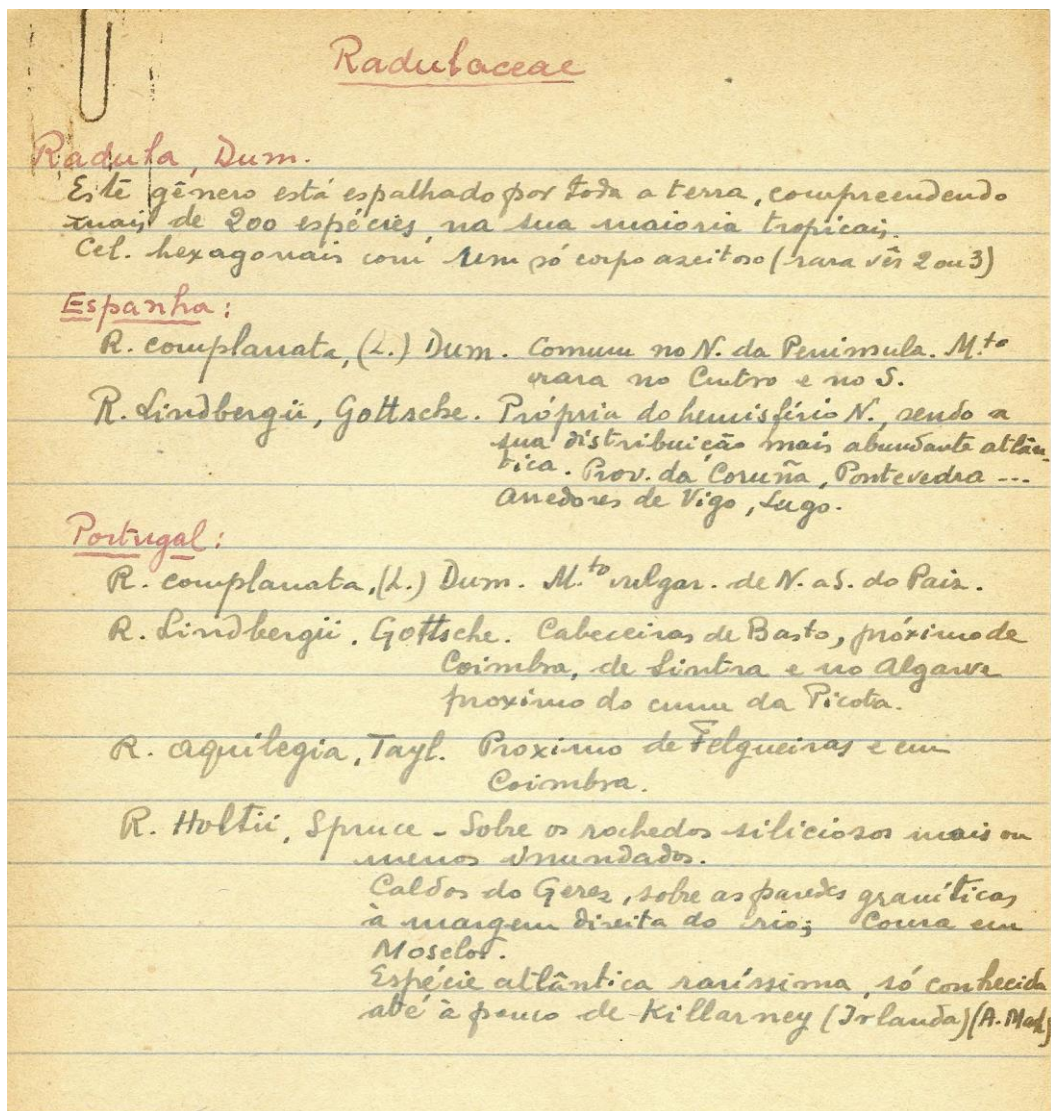 Radulaceae
Radula, Dum.
Este gênero está espalhado por toda a terra, compreendendo
mais de 200 espécies, na sua maioria tropicais.
Cel. hexagonais com um só corpo azeitoso (rara vês 2 ou 3)
Espanha:
R. complanata, (L.) Dum. Comum no N. da Peninsula. M.to
rara no Centro e no S.
R. Lindbergii, Gottsche. Própria do hemisfério N., sendo a
sua distribuição mais abundante atlân-
tica. Prov. da Coruña, Pontevedra ---
Arredores de Vigo, Lugo.
Portugal:
R. complanata, (L.) Dum. M.to vulgar. de N. a S. do Paiz.
R. Lindbergii, Gottsche. Cabeceiras de Basto, próximo de
Coimbra, de Sintra e no Algarve
proximo do cume da Picota.
R. aquilegia, Tayl. Proximo de Felgueiras e em
Coimbra.
R. Holtii, Spruce - Sobre os rochedos siliciosos mais ou
menos inundados.
Caldas do Gerez, sobre as paredes graníticas
à margem direita do rio; Coura em
Moselos.
Espécie atlântica raríssima, só conhecida
até à pouco de Killarney (Irlanda) (A. Mach.)